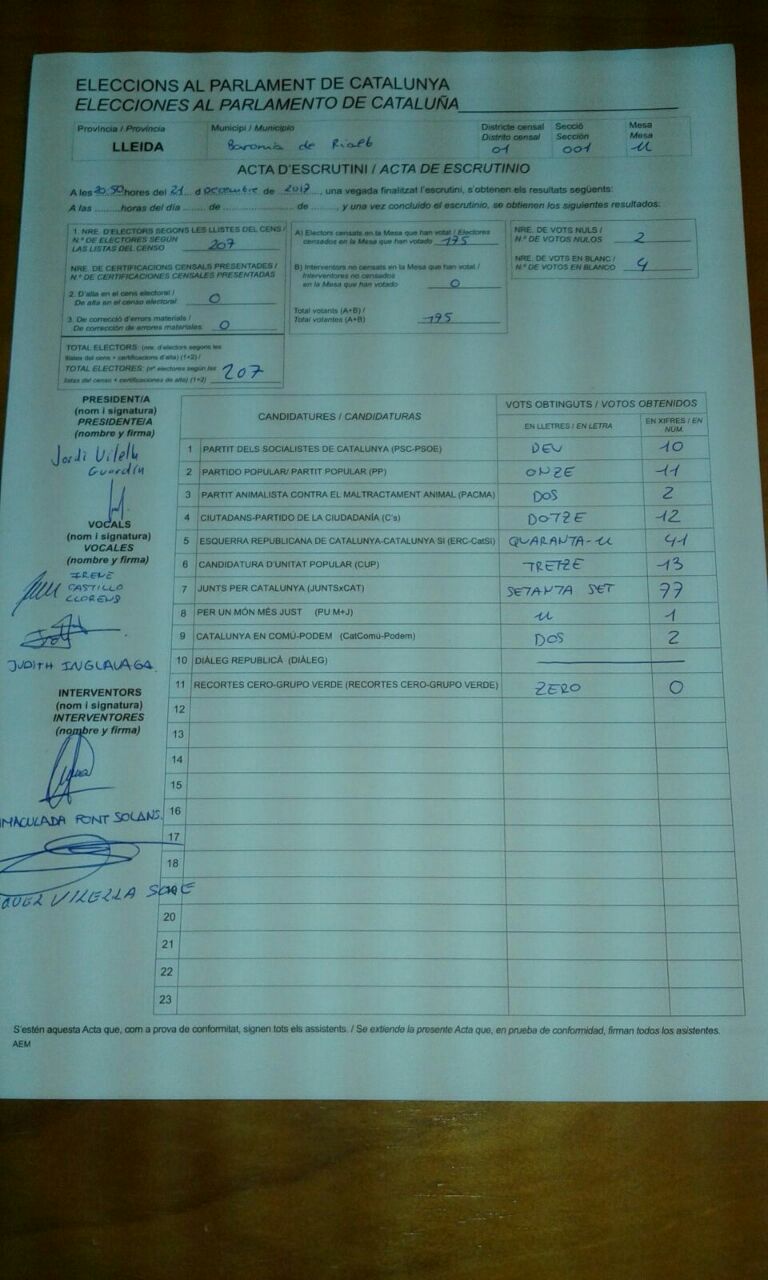 ELECCIONS AL PARLAMENT DE CATALUNYA
ELECCIONES AL PARLAMENTO DE CATALUÑA
Província / Provincia
LLEIDA
Municipi / Municipio
Baronia de Rialb
Districte censal
Distrito censal
01
Secció
Sección
001
Mesa
Mesa
U
ACTA D'ESCRUTINI / ACTA DE ESCRUTINIO
A les 20:50 hores del 21 d desembre de 2017, una vegada finalitzat l'escrutini, s'obtenen els resultats següents:
A las ......... horas del día ...... de ........................ de ........... y una vez concluido el escrutinio, se obtienen los siguientes resultados:
1. NRE. D'ELECTORS SEGONS LES LLISTES DEL CENS /
N.º DE ELECTORES SEGÚN
LAS LISTAS DEL CENSO 207
NRE. DE CERTIFICACIONS CENSALS PRESENTADES /
N.º DE CERTIFICACIONES CENSALES PRESENTADAS
2. D'alta en el cens electoral /
De alta en el censo electoral 0
3. De correcció d'errors materials /
De corrección de errores materiales 0
TOTAL ELECTORS: (nre. d'electors segons les
llistes del cens + certificacions d'alta) (1+2) /
TOTAL ELECTORES: (nº electores según las
listas del censo + certificaciones de alta) (1+2) 207
A) Electors censats en la Mesa que han votat / Electores
censados en la Mesa que han votado 175
B) Interventors no censats en la Mesa que han votat /
Interventores no censados
en la Mesa que han votado 0
Total votants (A+B) /
Total votantes (A+B) 175
NRE. DE VOTS NULS /
N.º DE VOTOS NULOS 2
NRE. DE VOTS EN BLANC /
N.º DE VOTOS EN BLANCO 4
PRESIDENT/A
(nom i signatura)
PRESIDENTE/A
(nombre y firma)
Jordi Vilella
Guardia
VOCALS
(nom i signatura)
VOCALES
(nombre y firma)
IRENE
CASTILLO
LLORENS
JUDITH INGLAVAGA
INTERVENTORS
(nom i signatura)
INTERVENTORES
(nombre y firma)
IMACULADA FONT SOLANS.
VILELLA
CANDIDATURES / CANDIDATURAS
VOTS OBTINGUTS / VOTOS OBTENIDOS
EN LLETRES / EN LETRA
EN XIFRES / EN NÚM.
1 PARTIT DELS SOCIALISTES DE CATALUNYA (PSC-PSOE) DEU 10
2 PARTIDO POPULAR/ PARTIT POPULAR (PP) ONZE 11
3 PARTIT ANIMALISTA CONTRA EL MALTRACTAMENT ANIMAL (PACMA) DOS 2
4 CIUTADANS-PARTIDO DE LA CIUDADANÍA (C's) DOTZE 12
5 ESQUERRA REPUBLICANA DE CATALUNYA-CATALUNYA SI (ERC-CatSí) QUARANTA-U 41
6 CANDIDATURA D'UNITAT POPULAR (CUP) TRETZE 13
7 JUNTS PER CATALUNYA (JUNTSxCAT) SETANTA SET 77
8 PER UN MÓN MÉS JUST (PU M+J) U 1
9 CATALUNYA EN COMÚ-PODEM (CatComú-Podem) DOS 2
10 DIÀLEG REPUBLICÀ (DIÀLEG)
11 RECORTES CERO-GRUPO VERDE (RECORTES CERO-GRUPO VERDE) ZERO 0
12
13
14
15
16
17
18
19
20
21
22
23
S'estén aquesta Acta que, com a prova de conformitat, signen tots els assistents. / Se extiende la presente Acta que, en prueba de conformidad, firman todos los asistentes.
AEM